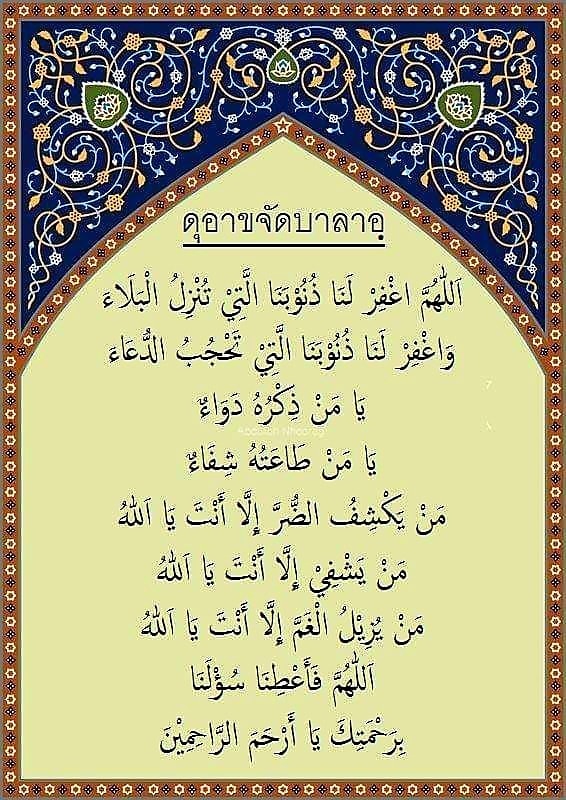 ดุอาขจัดบาลาอฺ
اَللّٰهُمَّ اغْفِرْ لَنَا ذُنُوْبَنَا الَّتِيْ تُنْزِلُ الْبَلَاءَ
وَاغْفِرْ لَنَا ذُنُوْبَنَا الَّتِيْ تَحْجُبُ الدُّعَاءَ
يَا مَنْ ذِكْرُهُ دَوَاءٌ
يَا مَنْ طَاعَتُهُ شِفَاءٌ
مَنْ يَكْشِفُ الضُّرَّ إِلَّا أَنْتَ يَا اَللّٰهُ
مَنْ يَشْفِيْ إِلَّا أَنْتَ يَا اَللّٰهُ
مَنْ يُزِيْلُ الْغَمَّ إِلَّا أَنْتَ يَا اَللّٰهُ
اَللّٰهُمَّ فَأَعْطِنَا سُؤْلَنَا
بِرَحْمَتِكَ يَا أَرْحَمَ الرَّاحِمِيْنَ